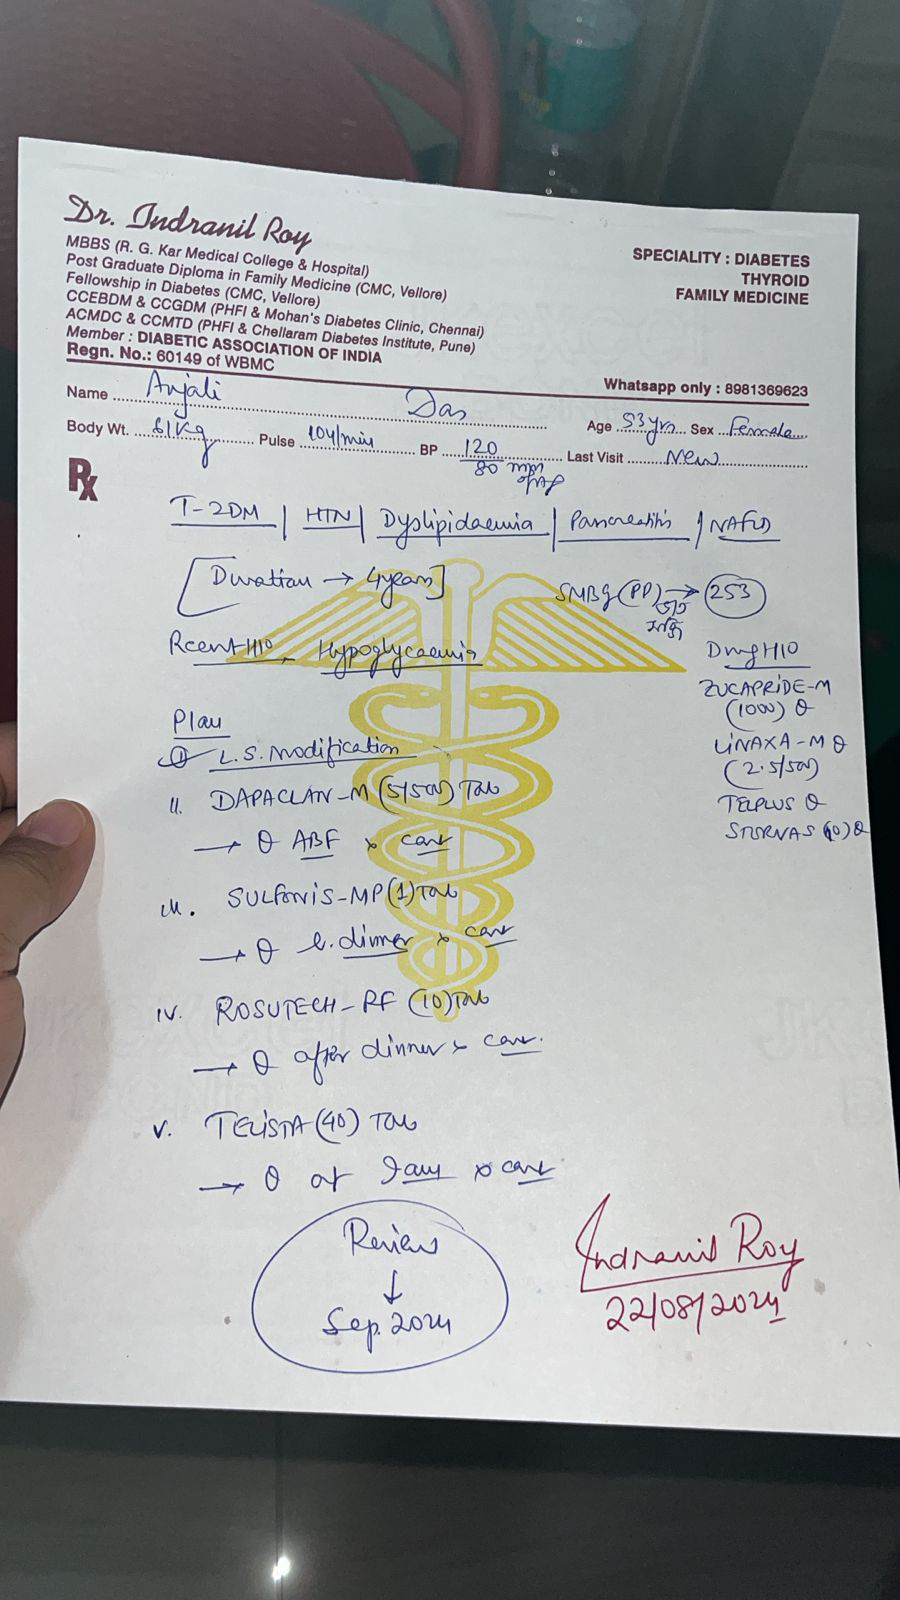 Dr. Indranil Roy
MBBS (R. G. Kar Medical College & Hospital)
Post Graduate Diploma in Family Medicine (CMC, Vellore)
Fellowship in Diabetes (CMC, Vellore)
CCEBDM & CCGDM (PHFI & Mohan's Diabetes Clinic, Chennai)
ACMDC & CCMTD (PHFI & Chellaram Diabetes Institute, Pune)
Member : DIABETIC ASSOCIATION OF INDIA
Regn. No.: 60149 of WBMC
SPECIALITY : DIABETES
THYROID
FAMILY MEDICINE
Whatsapp only : 8981369623
Name Anjali Das Age 53yrs Sex Female
Body Wt. 61kg Pulse 104/min BP 120/80 mm of Hg Last Visit New
Rx
T-2DM | HTN | Dyslipidaemia | Pancreatitis | NAFLD
[Duration → 4years]
SMBG (PP) → 253
Rcent H/O Hypoglycaemia
Drug H/O
ZUCAPRIDE-M
(1000)
LINAXA-M
(2.5/500)
TELPLUS
(10)
Plan
L.S. Modification
II. DAPACLAN-M (5/500) Tab
→ ABF x cont
III. SULFONIS-MP (1) Tab
→ dinner x cont
IV. ROSUTECH-RF (10) Tab
→ after dinner x cont.
V. TELISTA (40) Tab
→ at 9am x cont
Review
↓
Sep. 2024
Indranil Roy
22/08/2024